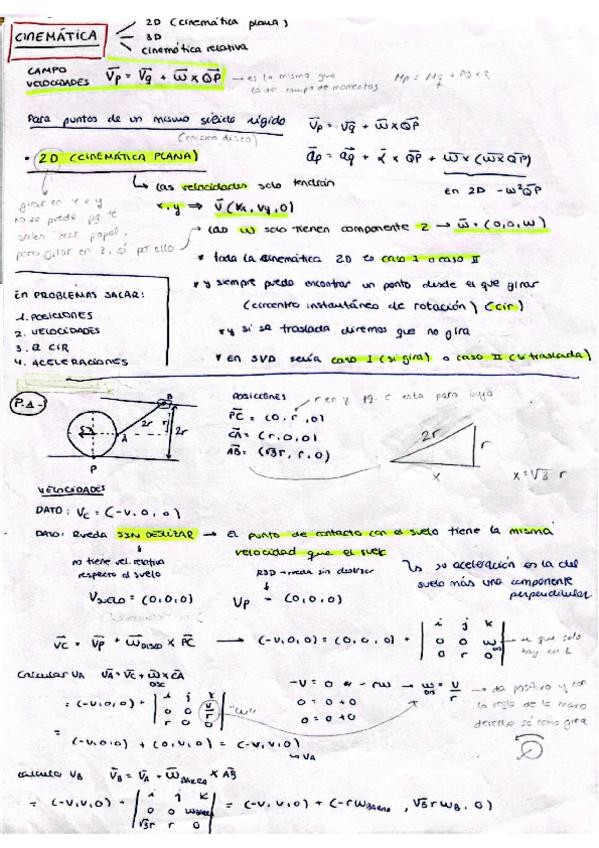 CINEMÁTICA
2D (cinemática plana)
3D
cinemática relativa
CAMPO VELOCIDADES V⃗p = V⃗q + ω⃗ x Q⃗P → es lo mismo que
Para puntos de un mismo sólido rígido V⃗p = V⃗q + ω⃗ x Q⃗P
(mismo disco)
• 2D (CINEMÁTICA PLANA) a⃗p = a⃗q + α⃗ x Q⃗P + ω⃗ x (ω⃗ x Q⃗P)
en 2D -ω²Q⃗P
↳ las velocidades solo tendrán
x, y ⇒ V⃗ (Vx, Vy, 0)
girar en x e y
no se puede pq te
sales del papel,
pero girar en z, sí por ello
→ las ω solo tienen componente z → ω⃗ = (0,0,ω)
* toda la cinemática 2D es caso I o caso II
* y siempre puedo encontrar un punto desde el que girar
(cincentro instantáneo de rotación) (cir)
* y si se traslada diremos que no gira
* en SVD sería caso I (si gira) o caso II (si traslada)
EN PROBLEMAS SACAR:
1. POSICIONES
2. VELOCIDADES
3. EL CIR
4. ACELERACIONES
P-A-1
B
2r
r
2r
C
A
P
POSICIONES
r en y pq C esta para bajo
P⃗C = (0, r, 0)
C⃗A = (r, 0, 0)
A⃗B = (√3r, r, 0)
2r
r
x
x = √3 r
VELOCIDADES
DATO: V⃗c = (-v, 0, 0)
DATO: Rueda SIN DESLIZAR → El punto de contacto con el suelo tiene la misma
velocidad que el suelo
no tiene vel. relativa
respecto al suelo
RSD → rueda sin deslizar
↳ su aceleración es la del
suelo más una componente
perpendicular
Vsuelo = (0,0,0)
Vp = (0,0,0)
V⃗c = V⃗p + ω⃗DISCO x P⃗C → (-v,0,0) = (0,0,0) + | i j k | 0 0 ω | 0 r 0 |
calcular VA V⃗A = V⃗c + ω⃗ x C⃗A
-v = 0 - rω → ω = v/r → da positivo y con
0 = 0 + 0
0 = 0 + 0
la regla de la mano
derecha sé como gira
= (-v,0,0) + | i j k | 0 0 v/r | r 0 0 | "ω"
= (-v,0,0) + (0,v,0) = (-v,v,0)
↳ VA
calcular VB V⃗B = V⃗A + ω⃗BARRA x A⃗B
= (-v,v,0) + | i j k | 0 0 ωBARRA | √3r r 0 | = (-v,v,0) + (-rωBARRA, √3rωB, 0)